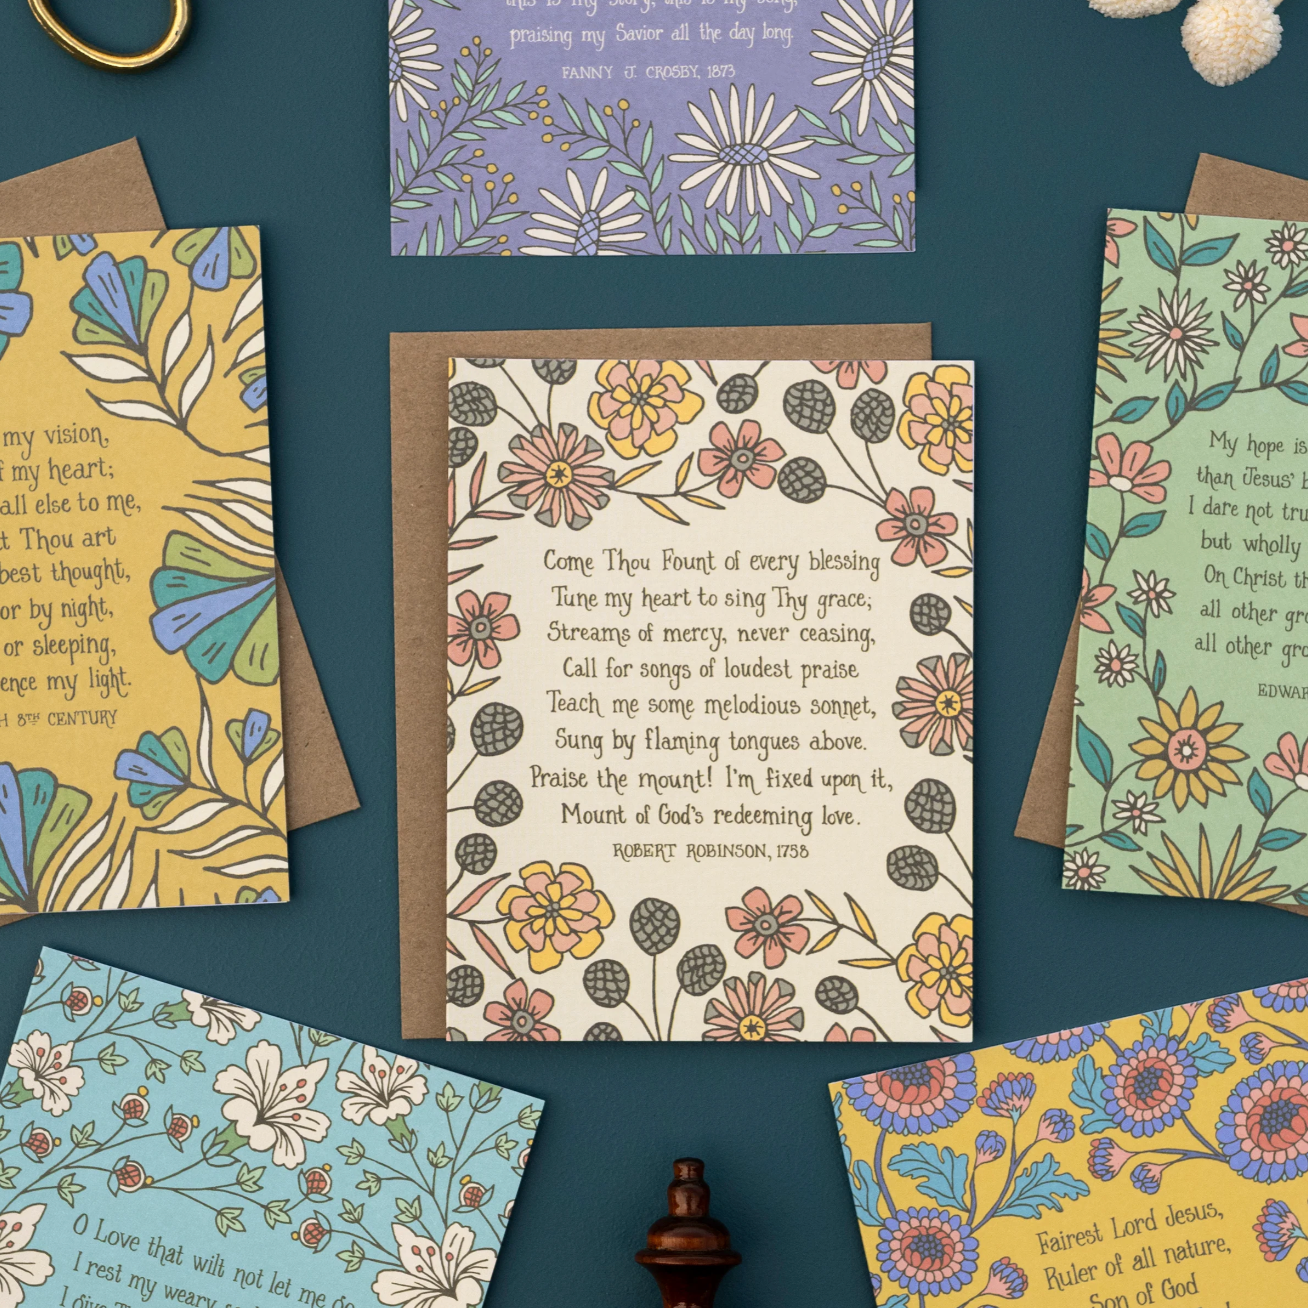 this is my story, this is my song,
praising my Savior all the day long.
FANNY J. CROSBY, 1873
my vision,
my heart;
all else to me,
Thou art
best thought,
or by night,
or sleeping,
my light.
8TH CENTURY
Come Thou Fount of every blessing
Tune my heart to sing Thy grace;
Streams of mercy, never ceasing,
Call for songs of loudest praise
Teach me some melodious sonnet,
Sung by flaming tongues above.
Praise the mount! I'm fixed upon it,
Mount of God's redeeming love.
ROBERT ROBINSON, 1758
My hope is
than Jesus'
I dare not
but wholly
On Christ
all other
all other
O Love that wilt not let me go
I rest my weary
I give
Fairest Lord Jesus,
Ruler of all nature,
Son of God